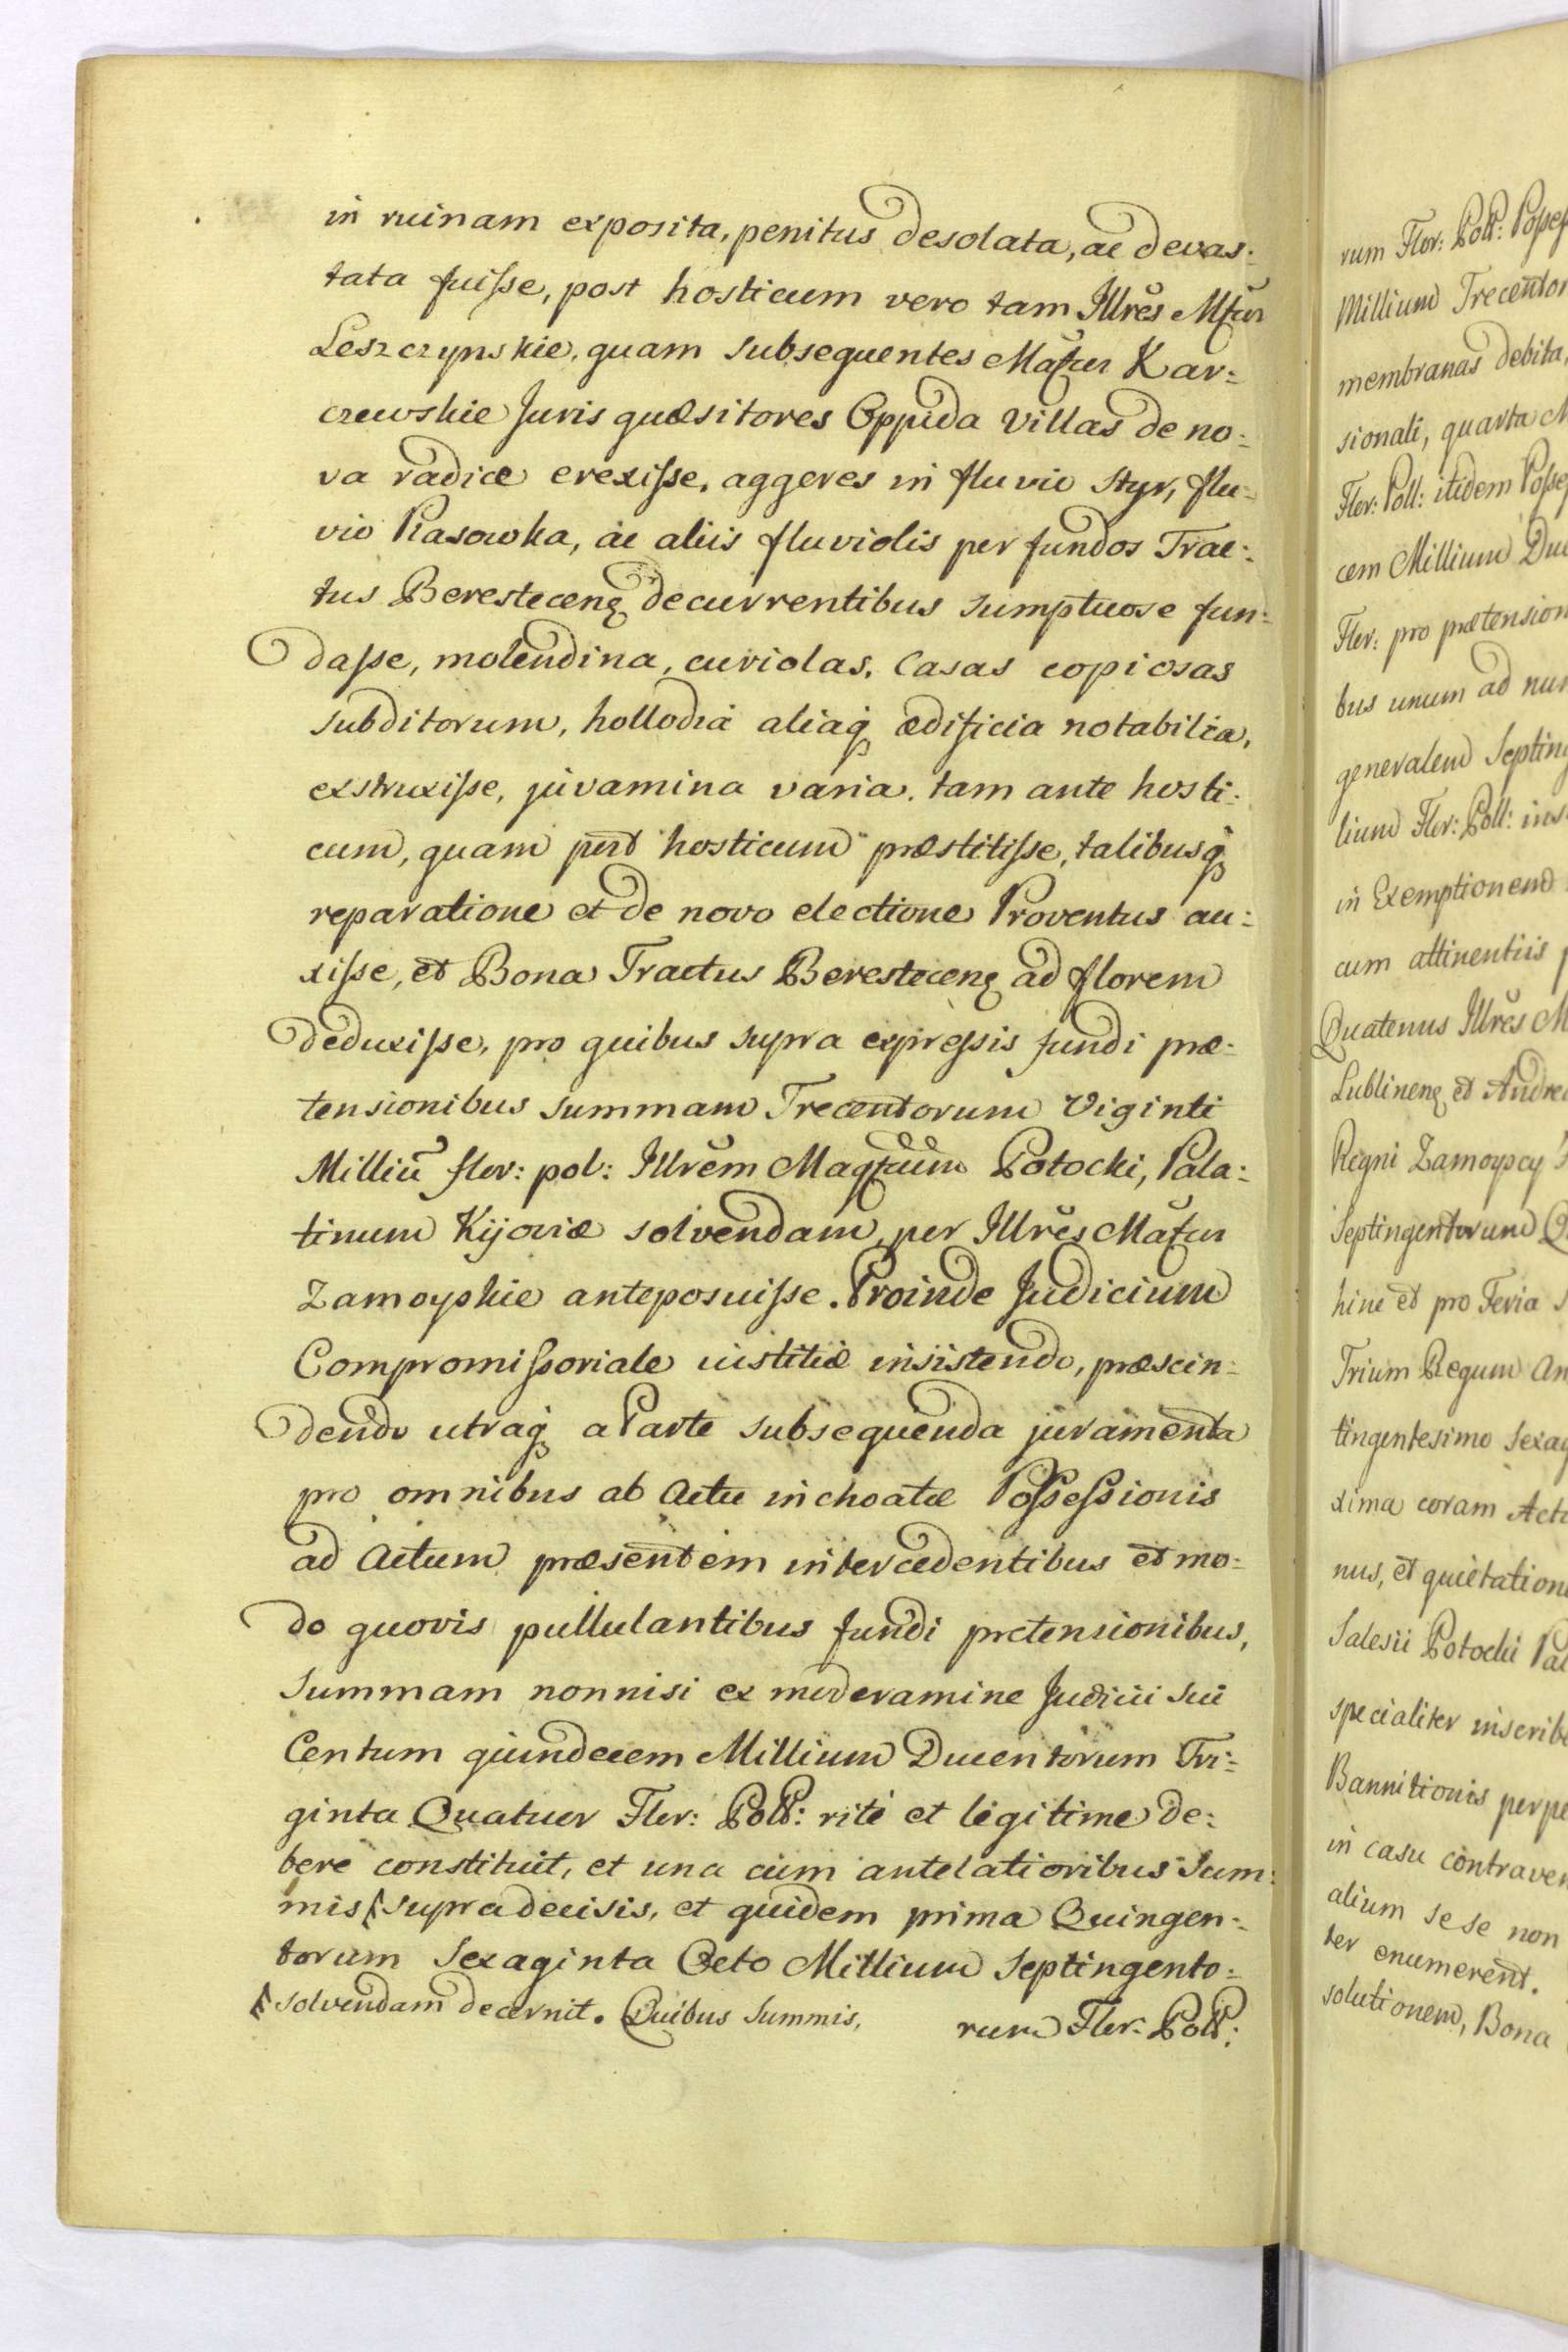 in ruinam exposita, penitus desolata, ac devas:
tata fuiſse, post hosticum vero tam Illrẽs Mfcũs
Leszczynskie, quam subsequentes Mãfcus Kar:
czewskie Juris quæsitores Oppida Villas de no:
va radice erexiſse, aggeres in fluvio Styr, flu:
vio Plasowka, ac aliis fluviolis per fundos Trac:
tus Berestecenẽ decurrentibus sumptuose fun:
daſse, molendina, curiolas, Casas copiosas
subditorum, hollodia aliaq́ ædificia notabilia,
exstruxiſse, juvamina varia, tam ante hosti:
cum, quam post hosticum præstitiſse, talibusq́
reparatione et de novo electione Proventus au:
xiſse, et Bona Tractus Beresteceng ad florem
deduxiſse, pro quibus supra expreſsis fundi præ:
tensionibus summam Trecentorum Viginti
Milliũ flor: pol: Illrẽm Magfcum Potocki, Pala:
tinum Kijoviæ solvendam, per Illrẽs Mãfcus
Zamoyskie anteposuiſse. Proinde Judicium
Compromiſsoriale iustitiæ insistendo, præscin:
dendo utraq́ a Parte subsequenda juramenta
pro omnibus ab Actu inchoatæ Poſseſsionis
ad Actum præsentem intercedentibus et mo:
do quovis pullulantibus fundi prætensionibus,
Summam nonnisi ex moderamine Judicii sui
Centum quindecem Millium Ducentorum Tri:
ginta Quatuor Flor: Poll: rite et legitime de:
bere constituit, et una cum antelatioribus Sum:
mis supradecisis, et quidem prima Quingen:
torum Sexaginta Octo Millium Septingento:
solvendam decernit. Quibus Summis,
rum Flor: Poll:
rum Flor: Poll: Poſseſ
Millium Trecentor
membranas debita,
sionali, quarta M
Flor: Poll: itidem Poſseſ
cem Millium Duc
Flor: pro prætension
bus unum ad nu
generalem Septin
lium Flor: Poll: ins
in Exemptionem
cum attinentiis p
Quatenus Illrẽs M
Lublineng et Andre
Regni Zamoyscy
Septingentorum Q
hinc et pro Feria
Trium Regum An
tingentesimo Sexag
xima coram Act
nus, et quietation
Salesii Potocki Pal
specialiter inscribe
Bannitionis perpe
in casu contraven
alium sese non
ter enumerent.
solutionem, Bona